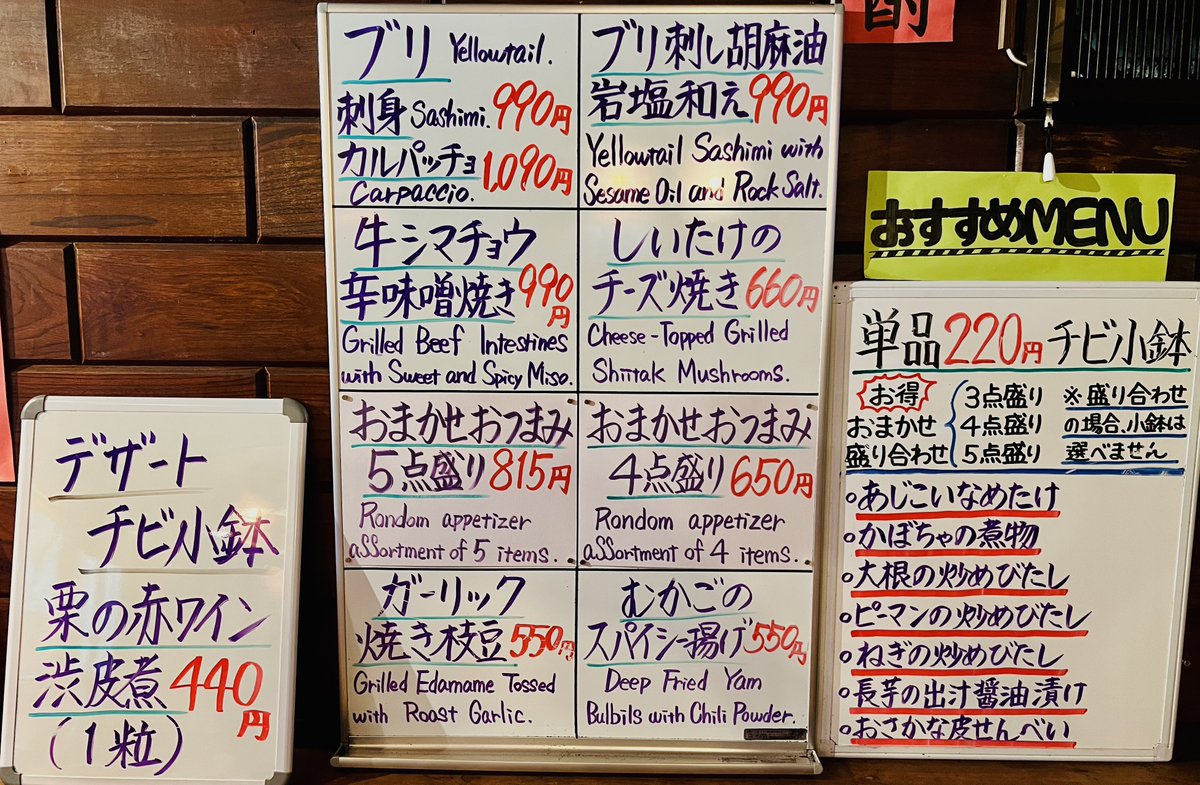 デザート
チビ小鉢
栗の赤ワイン
渋皮煮 440円
(1粒)
ブリ Yellowtail.
刺身 Sashimi. 990円
カルパッチョ 1,090円
Carpaccio.
ブリ刺し胡麻油
岩塩和え 990円
Yellowtail Sashimi with
Sesame Oil and Rock Salt.
牛シマチョウ
辛味噌焼き 990円
Grilled Beef Intestines
with Sweet and Spicy Miso.
しいたけの
チーズ焼き 660円
Cheese-Topped Grilled
Shiitak Mushrooms.
おまかせおつまみ
5点盛り 815円
Random appetizer
assortment of 5 items.
おまかせおつまみ
4点盛り 650円
Random appetizer
assortment of 4 items.
ガーリック
焼き枝豆 550円
Grilled Edamame Tossed
with Roast Garlic.
むかごの
スパイシー揚げ 550円
Deep Fried Yam
Bulbils with Chili Powder.
酌
おすすめMENU
単品220円 チビ小鉢
お得
おまかせ
盛り合わせ
3点盛り
4点盛り
5点盛り
※盛り合わせ
の場合、小鉢は
選べません
。あじこいなめたけ
。かぼちゃの煮物
。大根の炒めびたし
。ピーマンの炒めびたし
。ねぎの炒めびたし
。長芋の出汁醤油漬け
。おさかな皮せんべい